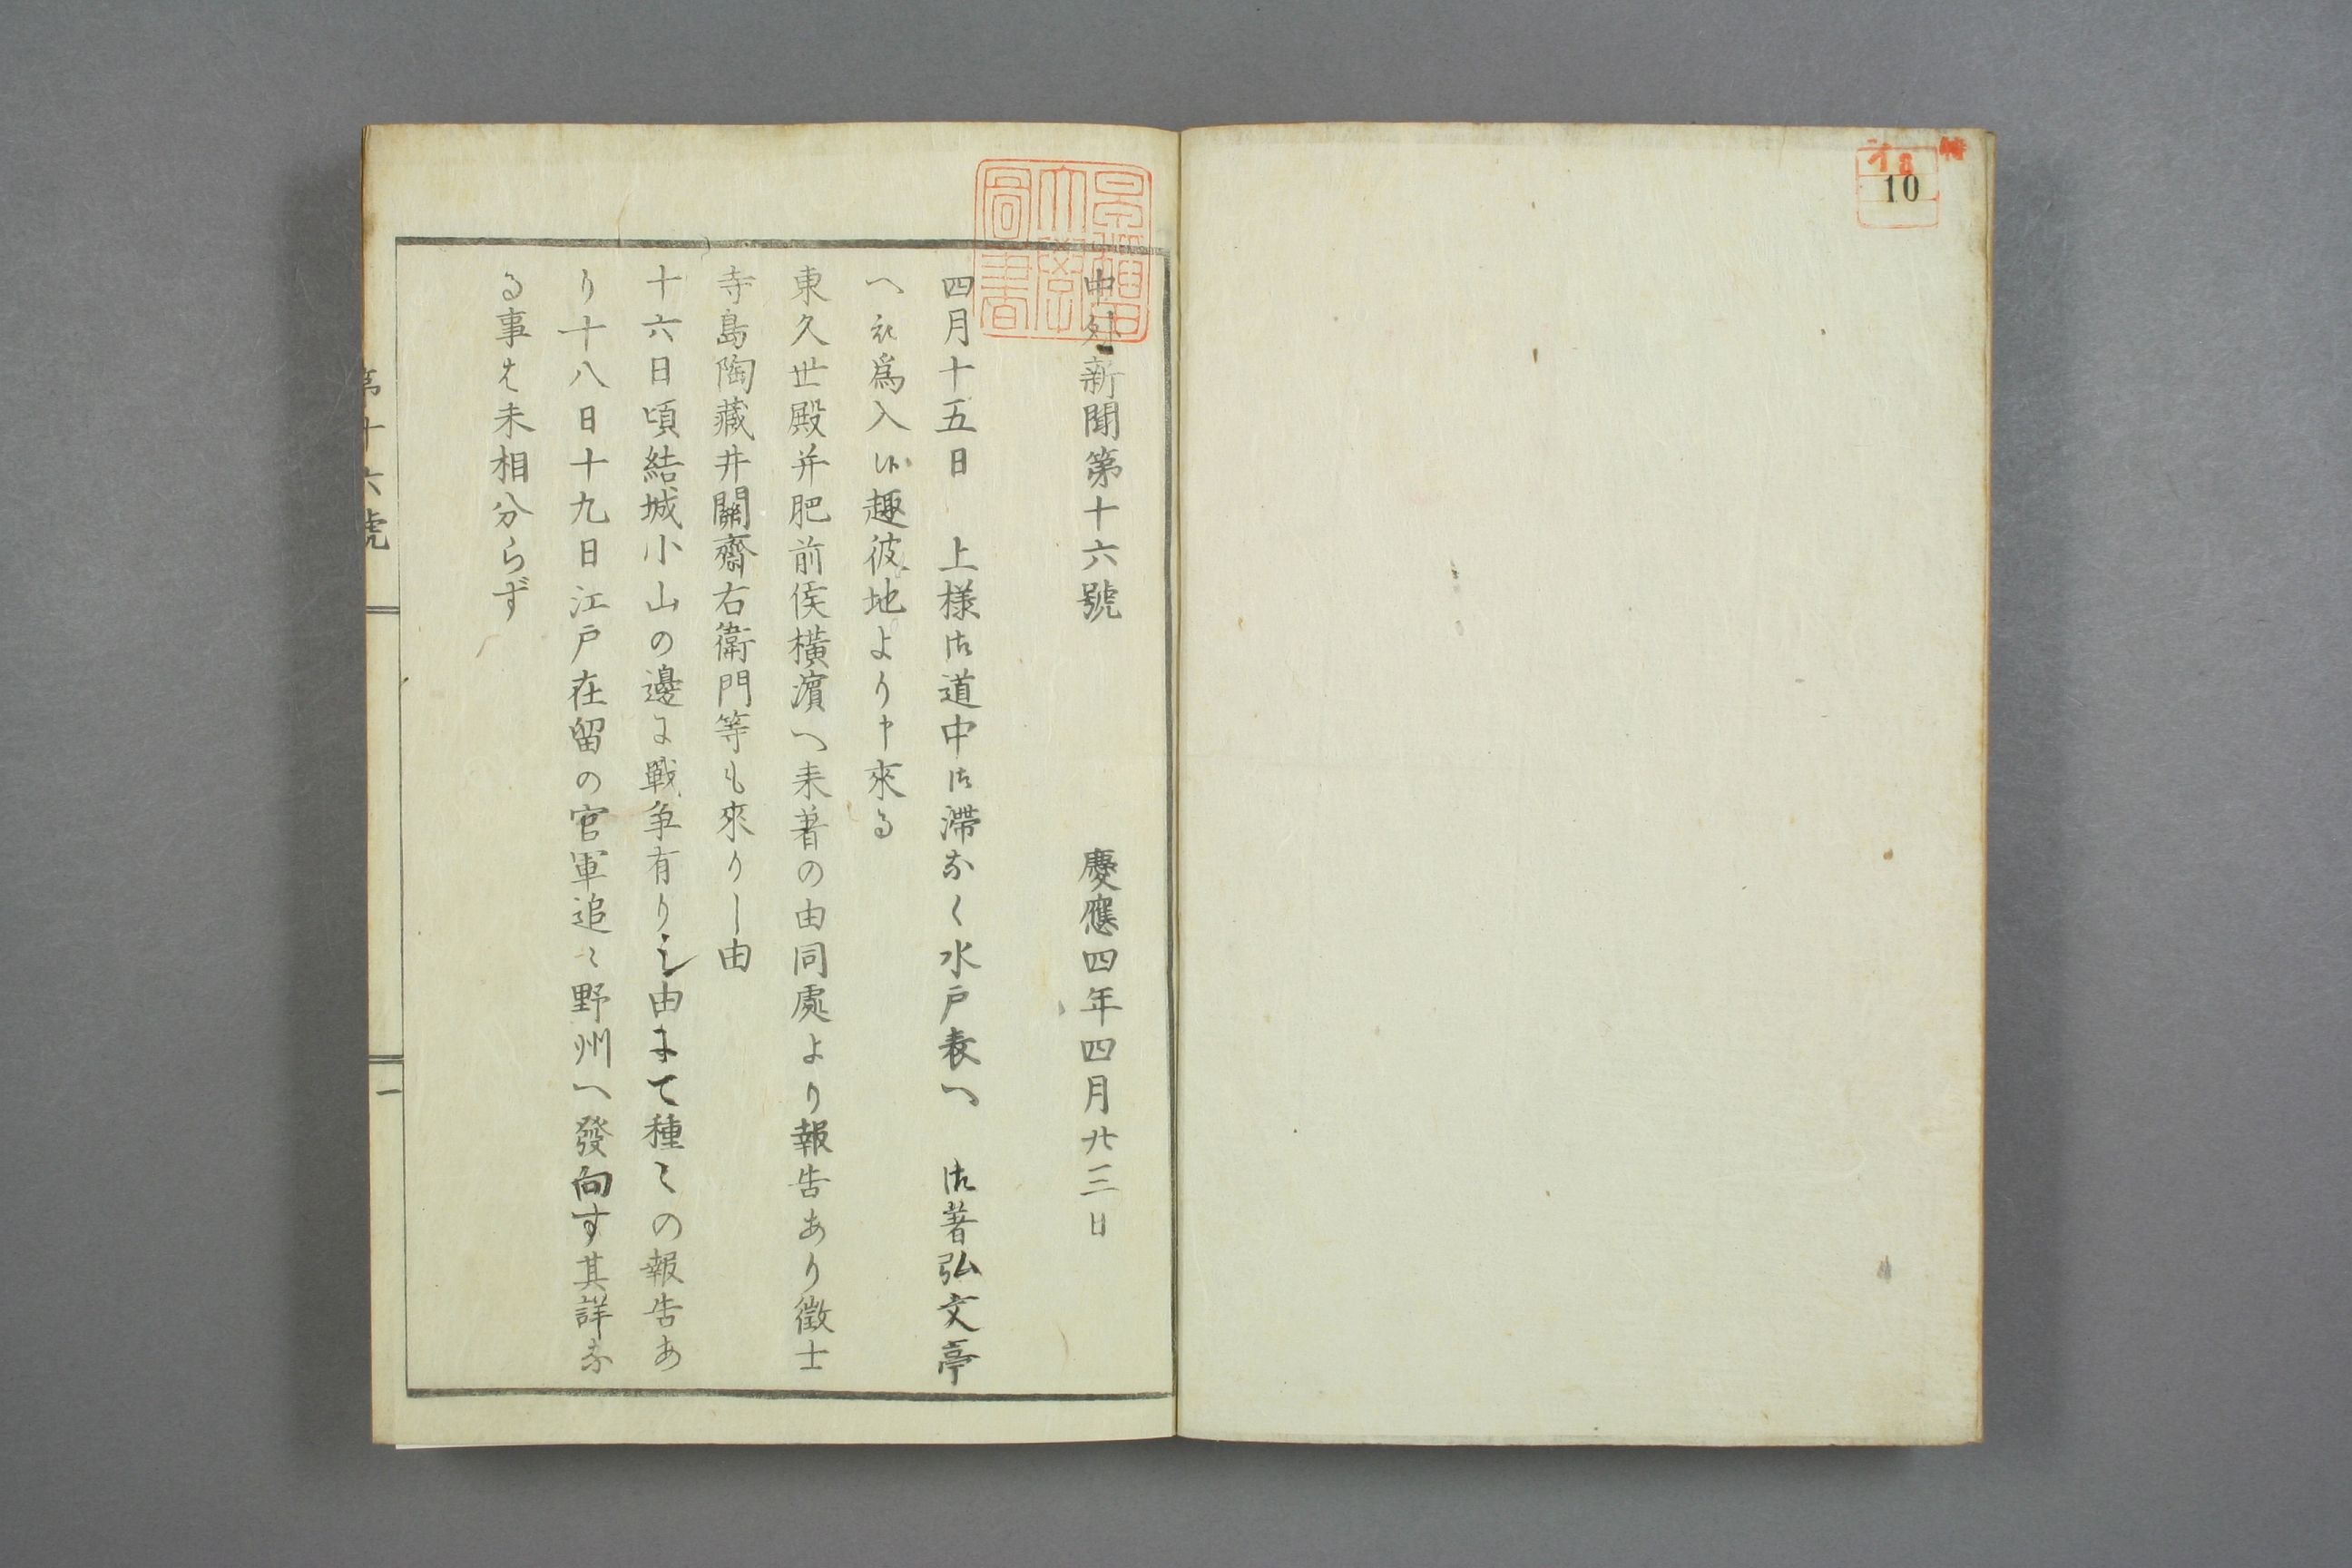 10
中外新聞第十六號　慶應四年四月廿三日
四月十五日　上様御道中御滯なく水戸表へ　御著弘文亭
へ被爲入候趣彼地より申來る
東久世殿并肥前侯橫濱へ来著の由同處より報告あり徵士
寺島陶藏井關齋右衞門等も來りし由
十六日頃結城小山の邊に戰争有りし由にて種々の報告あ
り十八日十九日江戸在留の官軍追々野州へ發向す其詳な
る事は未相分らず
第十六號
一